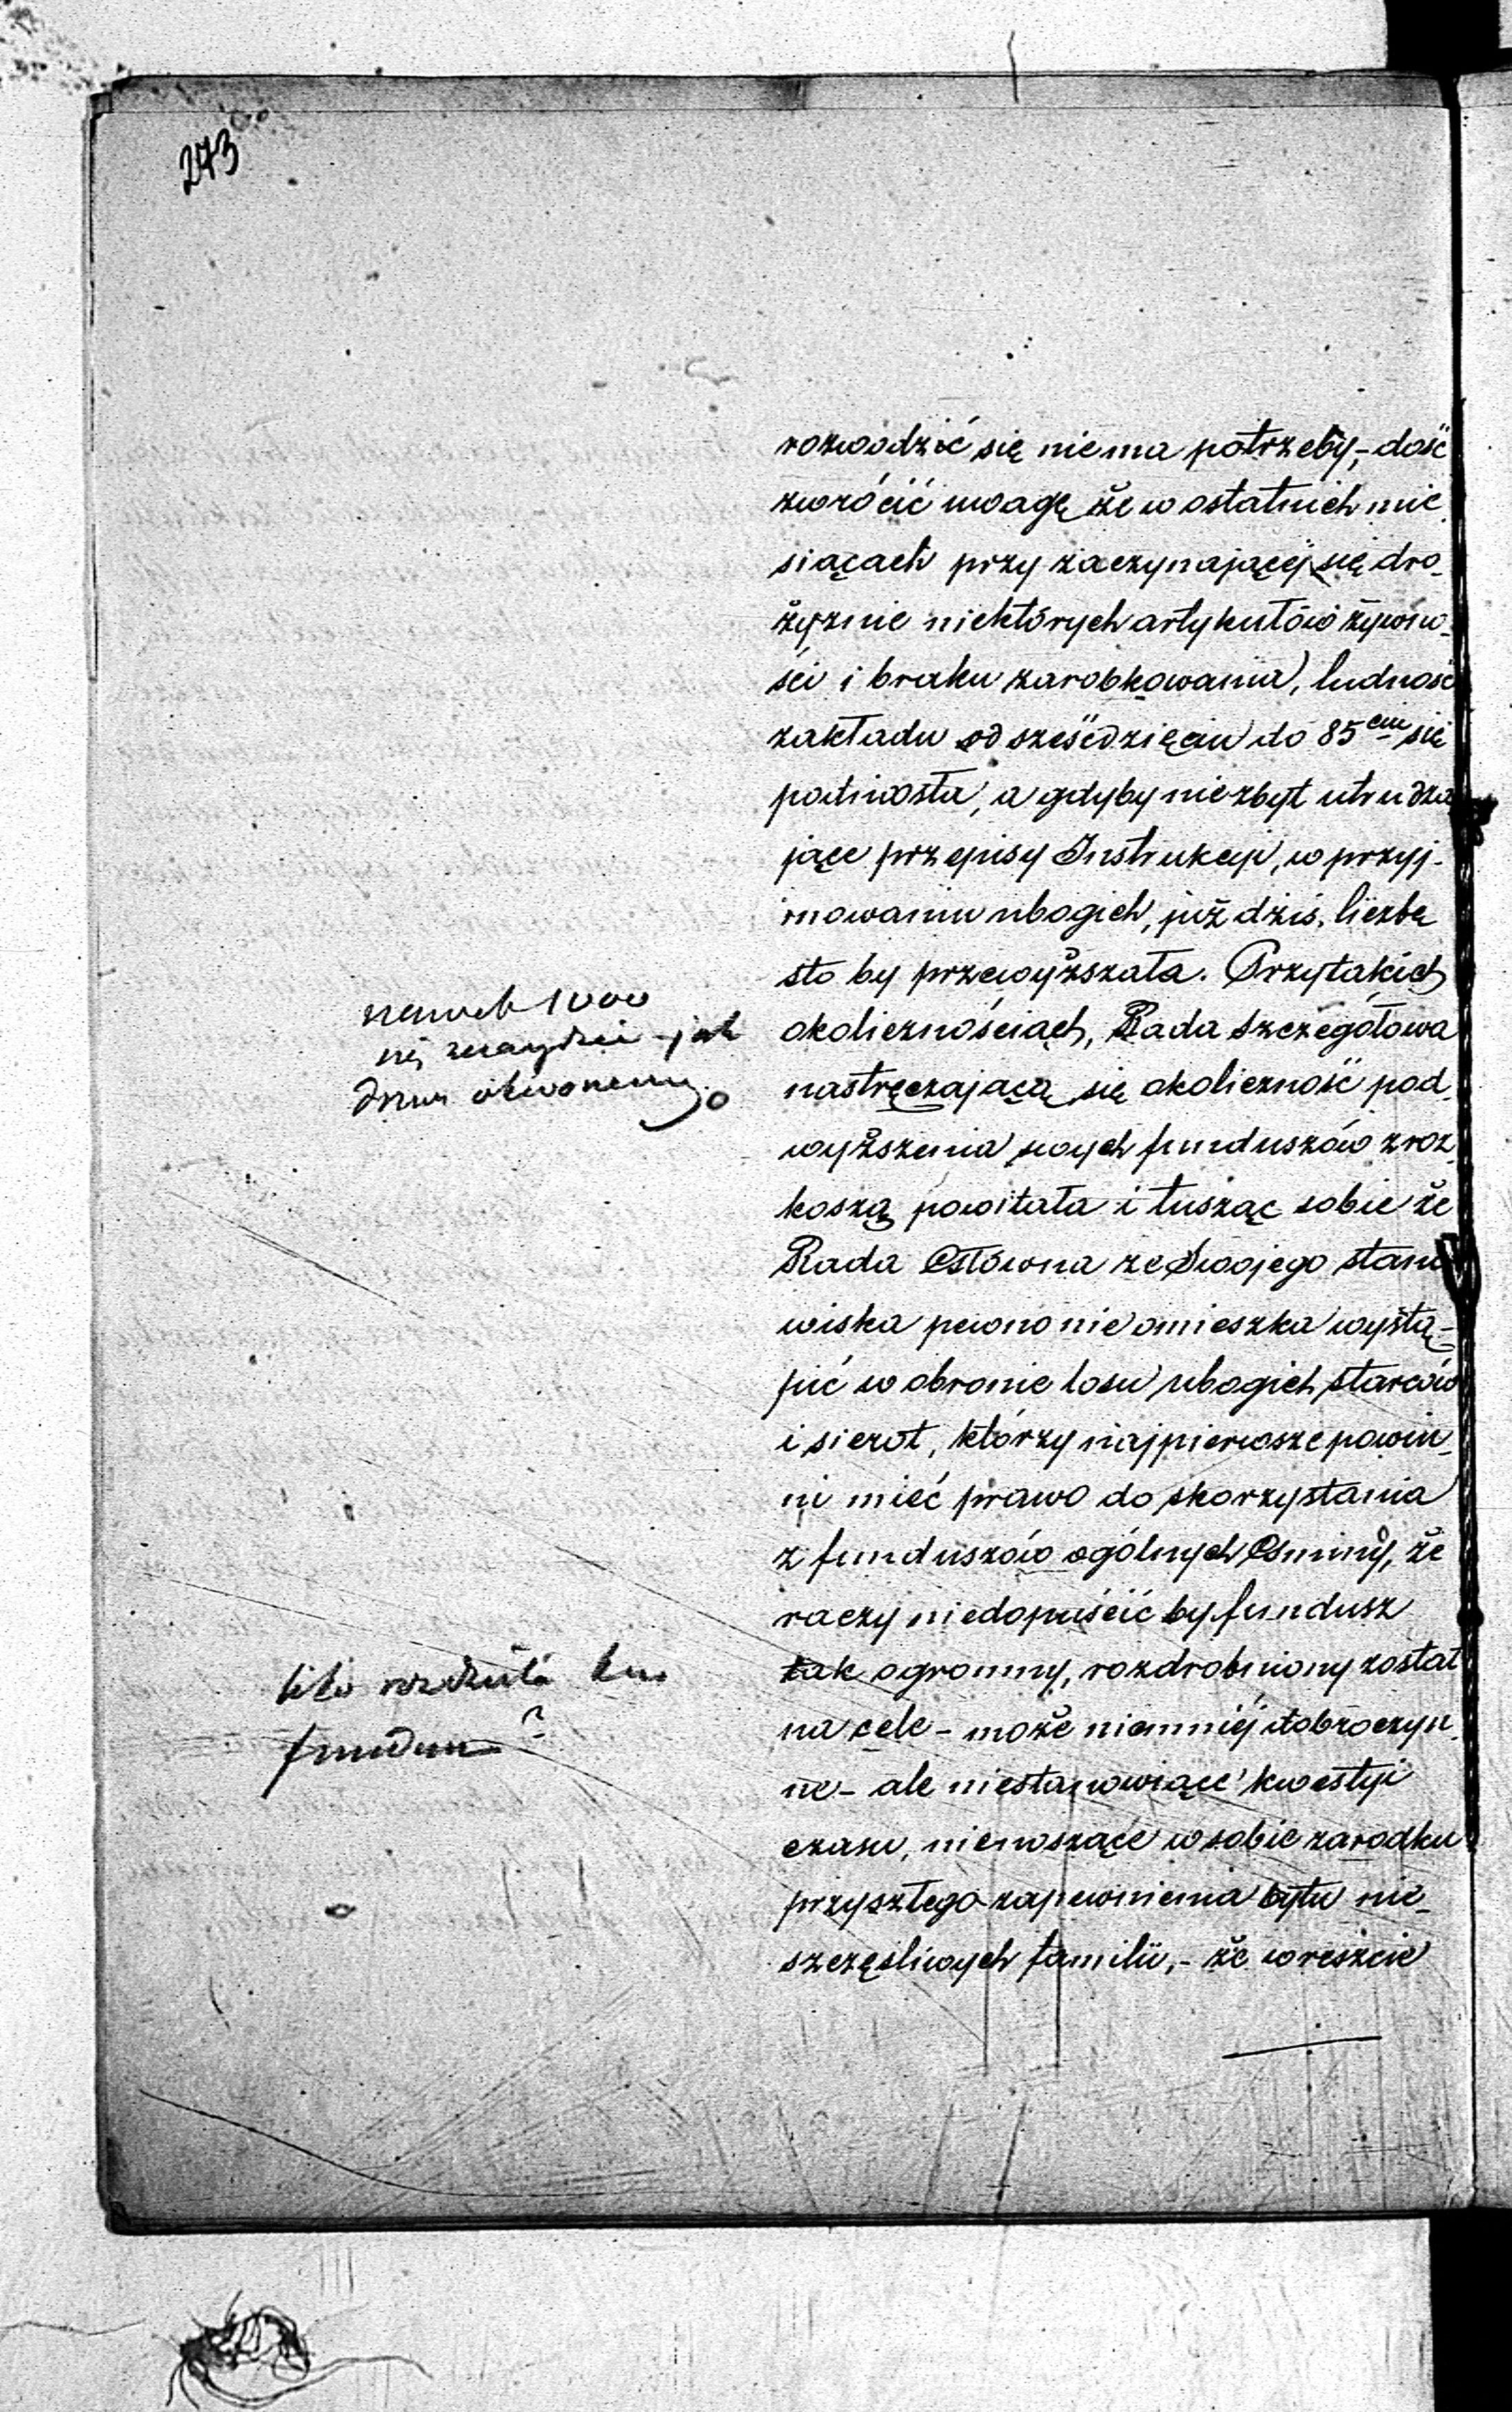 273
rozwodzić się niema potrzeby,- dość
zwrócić uwagę że w ostatnich mie_
siącach przy zaczynającéj się dro_
żyznie niektórych artykułów żywno_
ści i braku zarobkowania, ludność
zakładu od sześćdzięciu do 85ciu się
podniosła, a gdyby niezbyt utrudza
jące przepisy Instrukcyi, w przyj-
mowaniu ubogich, już dziś, liczbę
sto by przewyższała. Przytakich
okolicznościach, Rada Szczegółowa
nastręczającą się okoliczność pod_
wyższenia swych funduszów z roz_
koszą powitała i tusząc sobie że
Rada Główna ze Swojego stano
wiska pewno nie omieszka wystą-
pić w obronie losu ubogich starców
i sierot, którzy najpierwsze powin_
ni mieć prawo do skorzystania
z funduszów ogólnych Gminy, że
raczy niedopuścić by fundusz
tak ogromny, rozdrobniony został
na cele - może niemniéj dobroczyn_
ne - ale niestanowiące kwestyi
czasu, nienoszące w sobie zarodku
przyszłego zapewnienia bytu nie_
szczęsliwych familii,- że wreszcie
1000
się znajdzie - jak
fundusz?